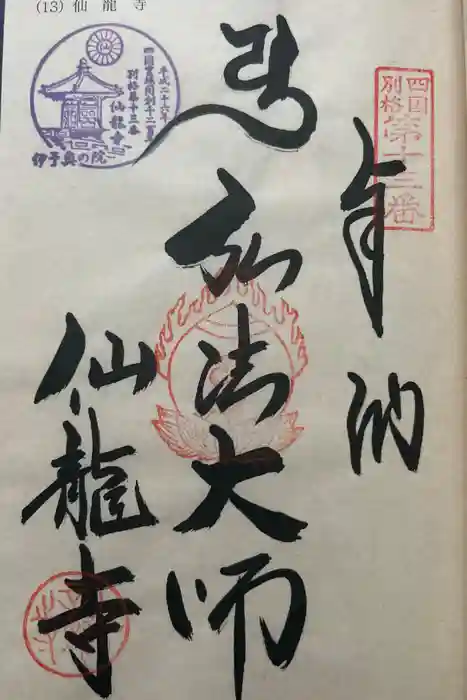 (13) 仙龍寺
四国
別格
第十三番
奉納
弘法大師
仙龍寺
平成二十六年
四国霊場開創千二百年
別格第十三番
仙龍寺
伊予奥の院